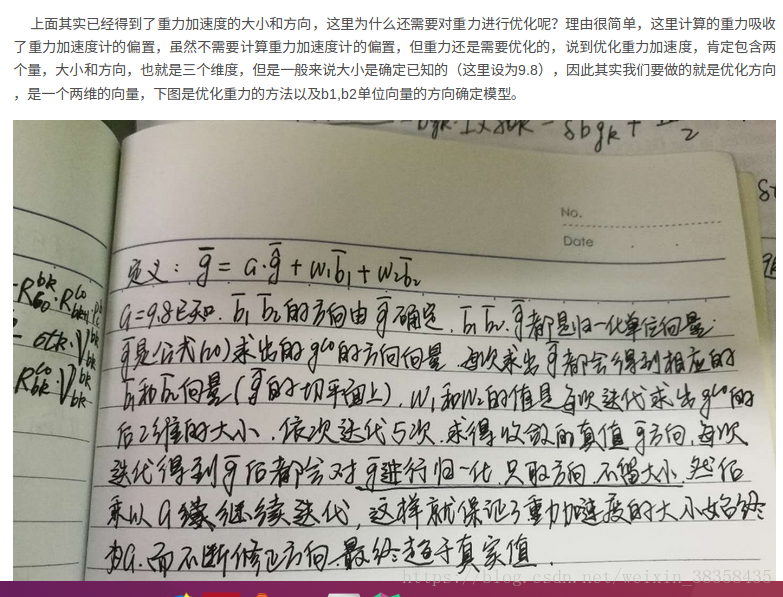 上面其实已经得到了重力加速度的大小和方向，这里为什么还需要对重力进行优化呢？理由很简单，这里计算的重力吸收
了重力加速度计的偏置，虽然不需要计算重力加速度计的偏置，但重力还是需要优化的，说到优化重力加速度，肯定包含两
个量，大小和方向，也就是三个维度，但是一般来说大小是确定已知的（这里设为9.8），因此其实我们要做的就是优化方向
，是一个两维的向量，下图是优化重力的方法以及b1,b2单位向量的方向确定模型。
No.
Date
定义： ḡ = G·ĝ̄ + w₁b̄₁ + w₂b̄₂
G=9.8已知. b̄₁ b̄₂的方向由ĝ̄确定, b̄₁ b̄₂ ĝ̄都是归一化单位向量.
ĝ̄是公式(20)求出的g^c0的方向向量. 每次求出ĝ̄都会得到相应的
b̄₁和b̄₂向量(ĝ̄的切平面上). w₁和w₂的值是每次迭代求出g^c0的
后2维的大小. 依次迭代5次. 求得收敛的真值ḡ方向, 每次
迭代得到ḡ后都会对ḡ进行归一化, 只取方向, 不留大小. 然后
乘以G 继续迭代, 这样就保证了重力加速度的大小始终
为G. 而不断修正方向. 最终趋于真实值.
https://blog.csdn.net/weixin_38358435